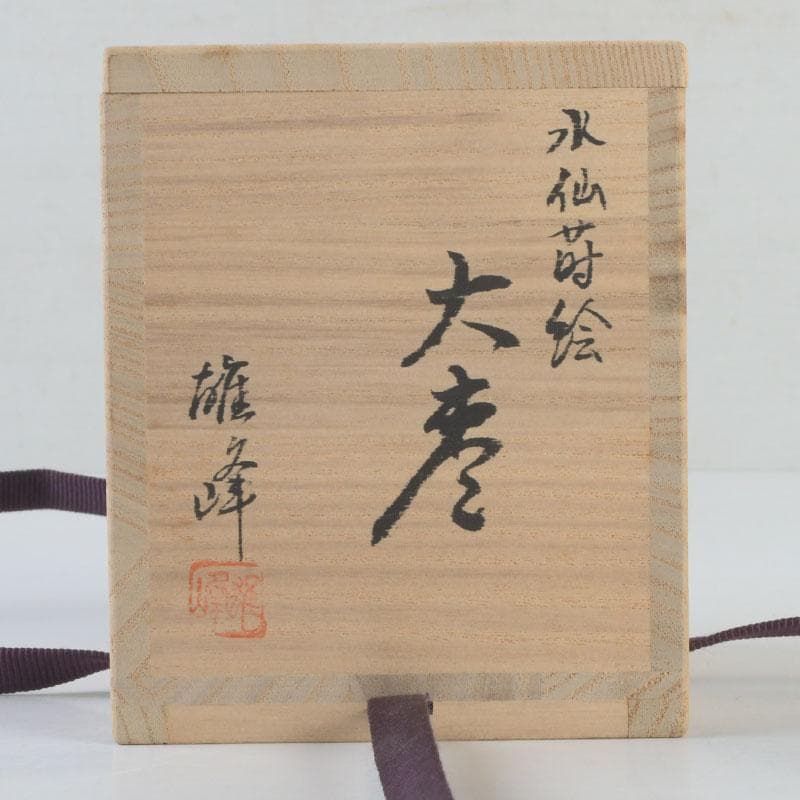 水仙蒔絵
大棗
雄峰